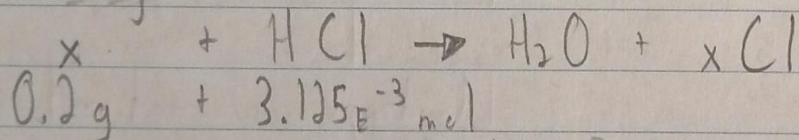 x + HCl → H₂O + xCl
0.2g + 3.125E⁻³ mol